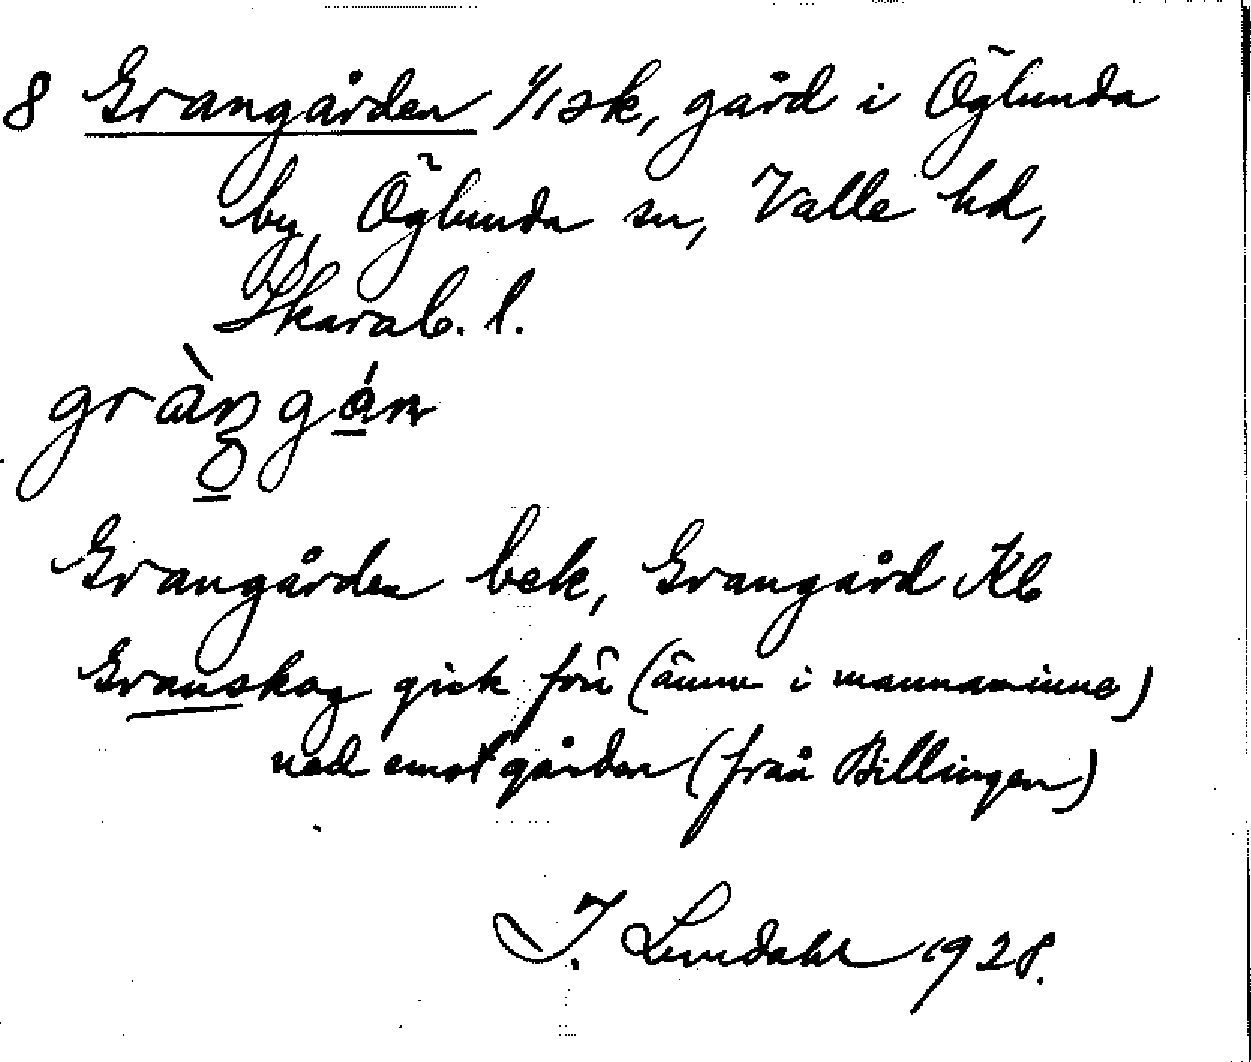 8 Grangården 1/1 sk, gård i Öglunda
by, Öglunda sn, Valle hd,
Skarab. l.
Grangården bek, Grangård Kb
Granskog gick förr (ännu i mannaminne)
ned emot gården (från Billingen)
J. Lundahl 1928.